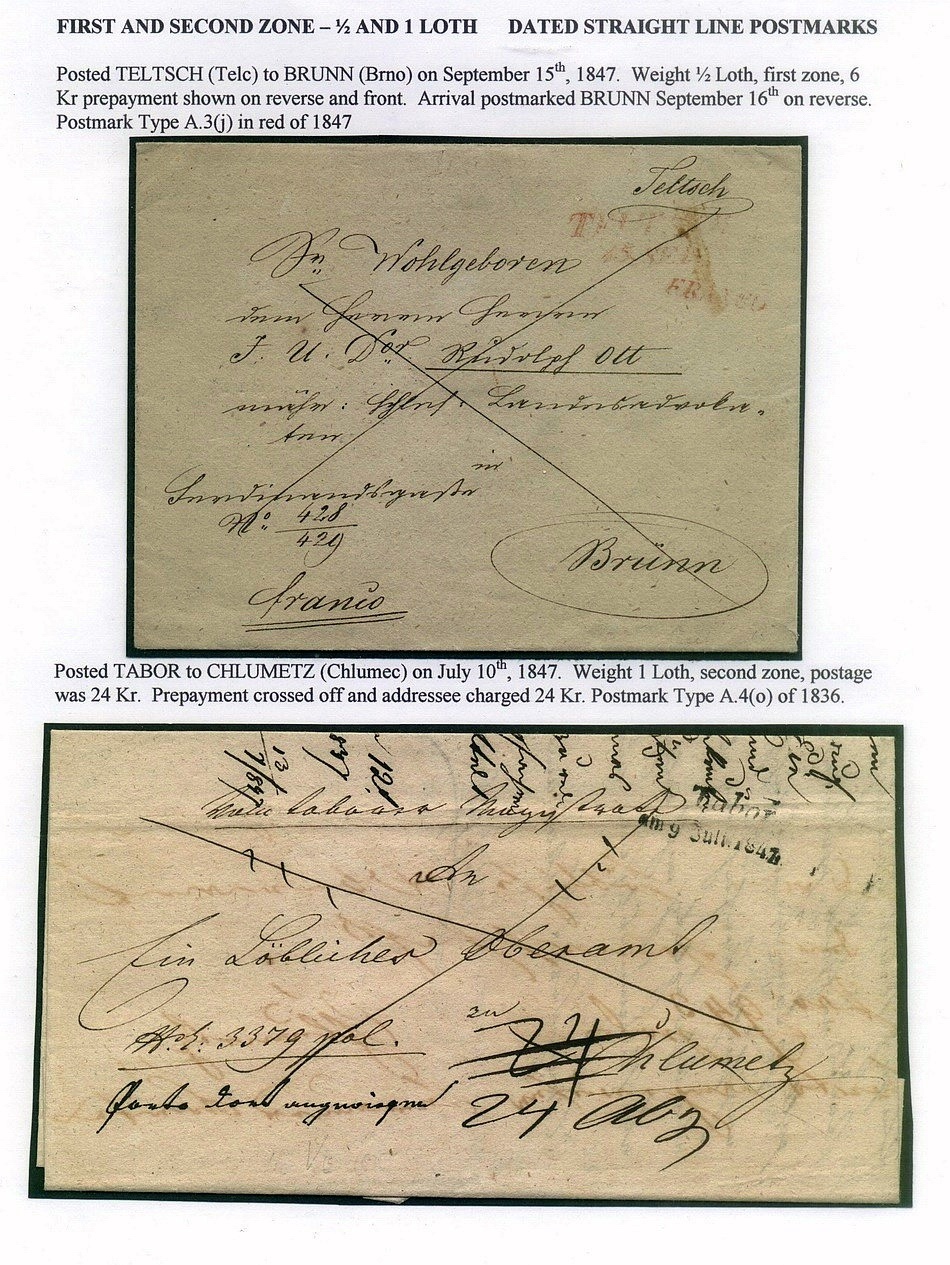 FIRST AND SECOND ZONE – ½ AND 1 LOTH DATED STRAIGHT LINE POSTMARKS
Posted TELTSCH (Telc) to BRUNN (Brno) on September 15th, 1847. Weight ½ Loth, first zone, 6
Kr prepayment shown on reverse and front. Arrival postmarked BRUNN September 16th on reverse.
Postmark Type A.3(j) in red of 1847
Teltsch
FRANCO
Sr Wohlgeboren
dem Herrn Herrn
J. U. Dor Rudolph Ott
mähr: schles: Landesadvoka-
ten
in
Ferdinandsgasse
No 428
429
Brünn
franco
Posted TABOR to CHLUMETZ (Chlumec) on July 10th, 1847. Weight 1 Loth, second zone, postage
was 24 Kr. Prepayment crossed off and addressee charged 24 Kr. Postmark Type A.4(o) of 1836.
Tabor
am 9 Juli. 1847.
An
Ein Löbliches Oberamt
3379 pol.
zu
24
Chlumetz
Porto dort angewiesen
24